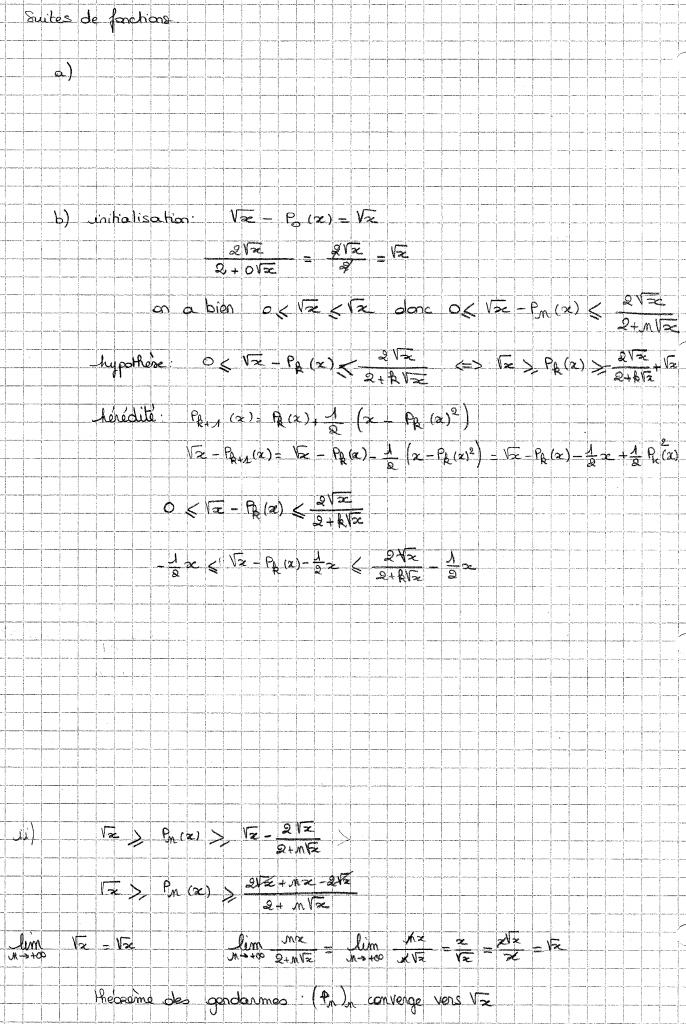 Suites de fonctions
a)
b) initialisation: √x - P₀(x) = √x
2√x / (2 + 0√x) = 2√x / 2 = √x
on a bien 0 ⩽ √x ⩽ √x donc 0 ⩽ √x - Pₙ(x) ⩽ 2√x / (2 + n√x)
hypothèse: 0 ⩽ √x - Pₖ(x) ⩽ 2√x / (2 + k√x) ⟺ √x ⩾ Pₖ(x) ⩾ -2√x / (2 + k√x) + √x
hérédité: Pₖ₊₁(x) = Pₖ(x) + 1/2 (x - Pₖ(x)²)
√x - Pₖ₊₁(x) = √x - Pₖ(x) - 1/2 (x - Pₖ(x)²) = √x - Pₖ(x) - 1/2 x + 1/2 Pₖ²(x)
0 ⩽ √x - Pₖ(x) ⩽ 2√x / (2 + k√x)
-1/2 x ⩽ √x - Pₖ(x) - 1/2 x ⩽ 2√x / (2 + k√x) - 1/2 x
ii) √x ⩾ Pₙ(x) ⩾ √x - 2√x / (2 + n√x)
√x ⩾ Pₙ(x) ⩾ (2√x + nx - 2√x) / (2 + n√x)
lim n→+∞ √x = √x lim n→+∞ nx / (2 + n√x) = lim n→+∞ nx / n√x = x / √x = x√x / x = √x
théorème des gendarmes : (Pₙ)ₙ converge vers √x